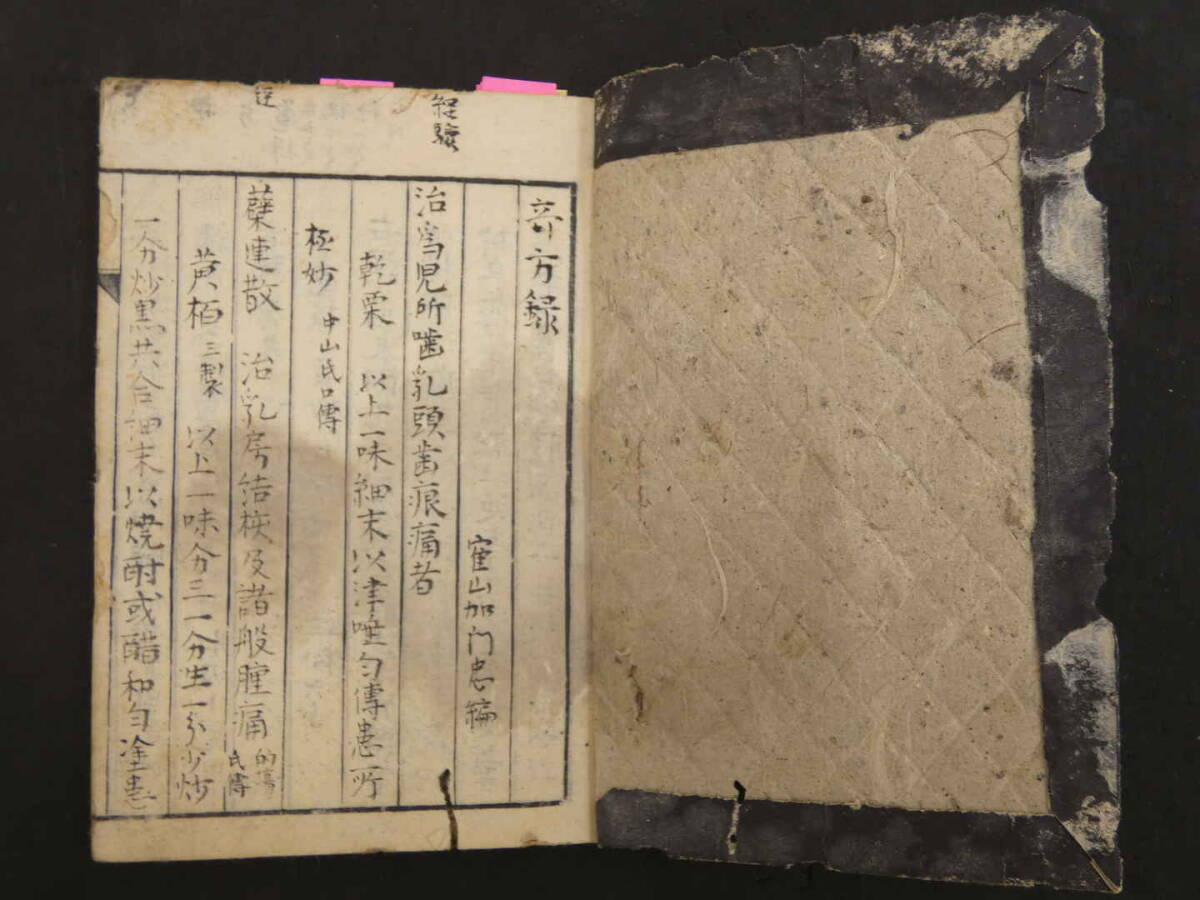 経驗
奇方録
隺山加门忠編
治為児所噛乳頭歯痕痛者
乾栗 以上一味細末以津唾匀傅患所
極妙 中山氏口傳
蘗連散 治乳房结核及諸般腫痛 的場氏傳
黄栢 三製 以上一味分三一分生一分少炒
一分炒黒共合細末以焼酎或醋和匀塗患